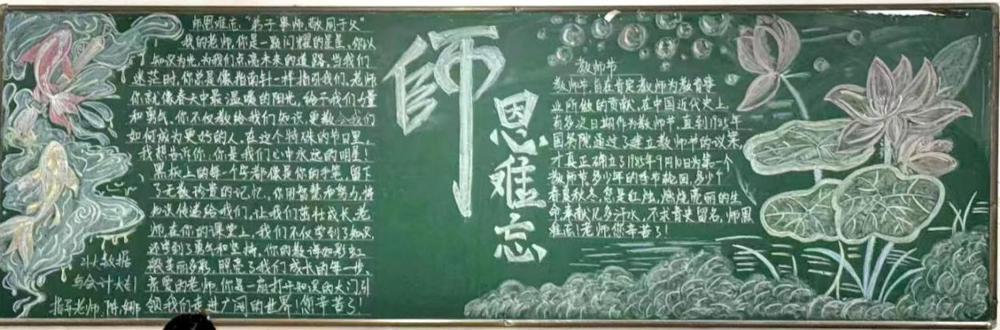 师恩难忘:“弟子事师,敬同于父”
我的老师,你是一颗闪耀的星星,你以
知识为光,为我们点亮未来的道路,当我们
迷茫时,你总是像指南针一样指引我们,老师
你就像春天中最温暖的阳光,给予我们力量
和勇气,你不仅教给我们知识,更教会我们
如何成为更好的人,在这个特殊的节日里,
我想告诉你,你是我们心中永远的明星!
黑板上的每一字都像是你的手笔,留下
了无数珍贵的记忆,你用智慧和努力,将
知识传递给我们,让我们茁壮成长,老
师,在你的课堂上,我们不仅学到了知识
还学到了勇气和坚持,你的教诲如彩虹
般美丽多彩,照亮了我们成长的每一步,
亲爱的老师,你是一扇打开知识的大门,引
领我们走进广阔的世界!您辛苦了!
大数据
与会计
指导老师:陈娜
師
恩
难
忘
教师节
教师节,旨在肯定教师为教育事
业所做的贡献,在中国近代史上,
有多次日期作为教师节,直到1985年
国务院通过了建立教师节的议案
才真正确立了1985年9月10日为第一个
教师节,多少年的季节轮回,多少个
春夏秋冬,您是红烛,燃烧亮丽的生
命,奉献几多汗水,不求青史留名,师恩
难忘!老师您辛苦了!